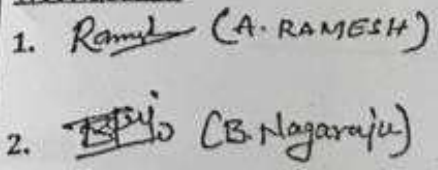 1. Ramesh (A. RAMESH)
2. (B. Nagaraju)